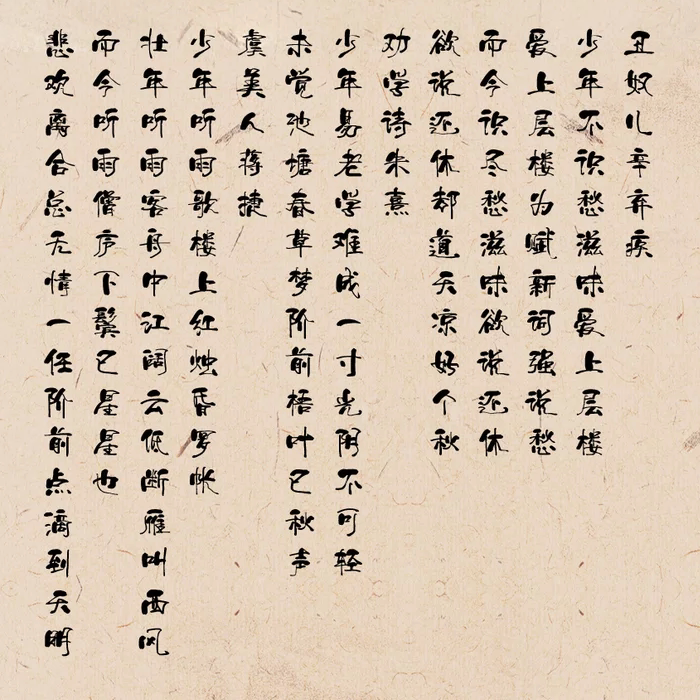 丑奴儿辛弃疾
少年不识愁滋味爱上层楼
爱上层楼为赋新词强说愁
而今识尽愁滋味欲说还休
欲说还休却道天凉好个秋
劝学诗朱熹
少年易老学难成一寸光阴不可轻
未觉池塘春草梦阶前梧叶已秋声
虞美人蒋捷
少年听雨歌楼上红烛昏罗帐
壮年听雨客舟中江阔云低断雁叫西风
而今听雨僧庐下鬓已星星也
悲欢离合总无情一任阶前点滴到天明